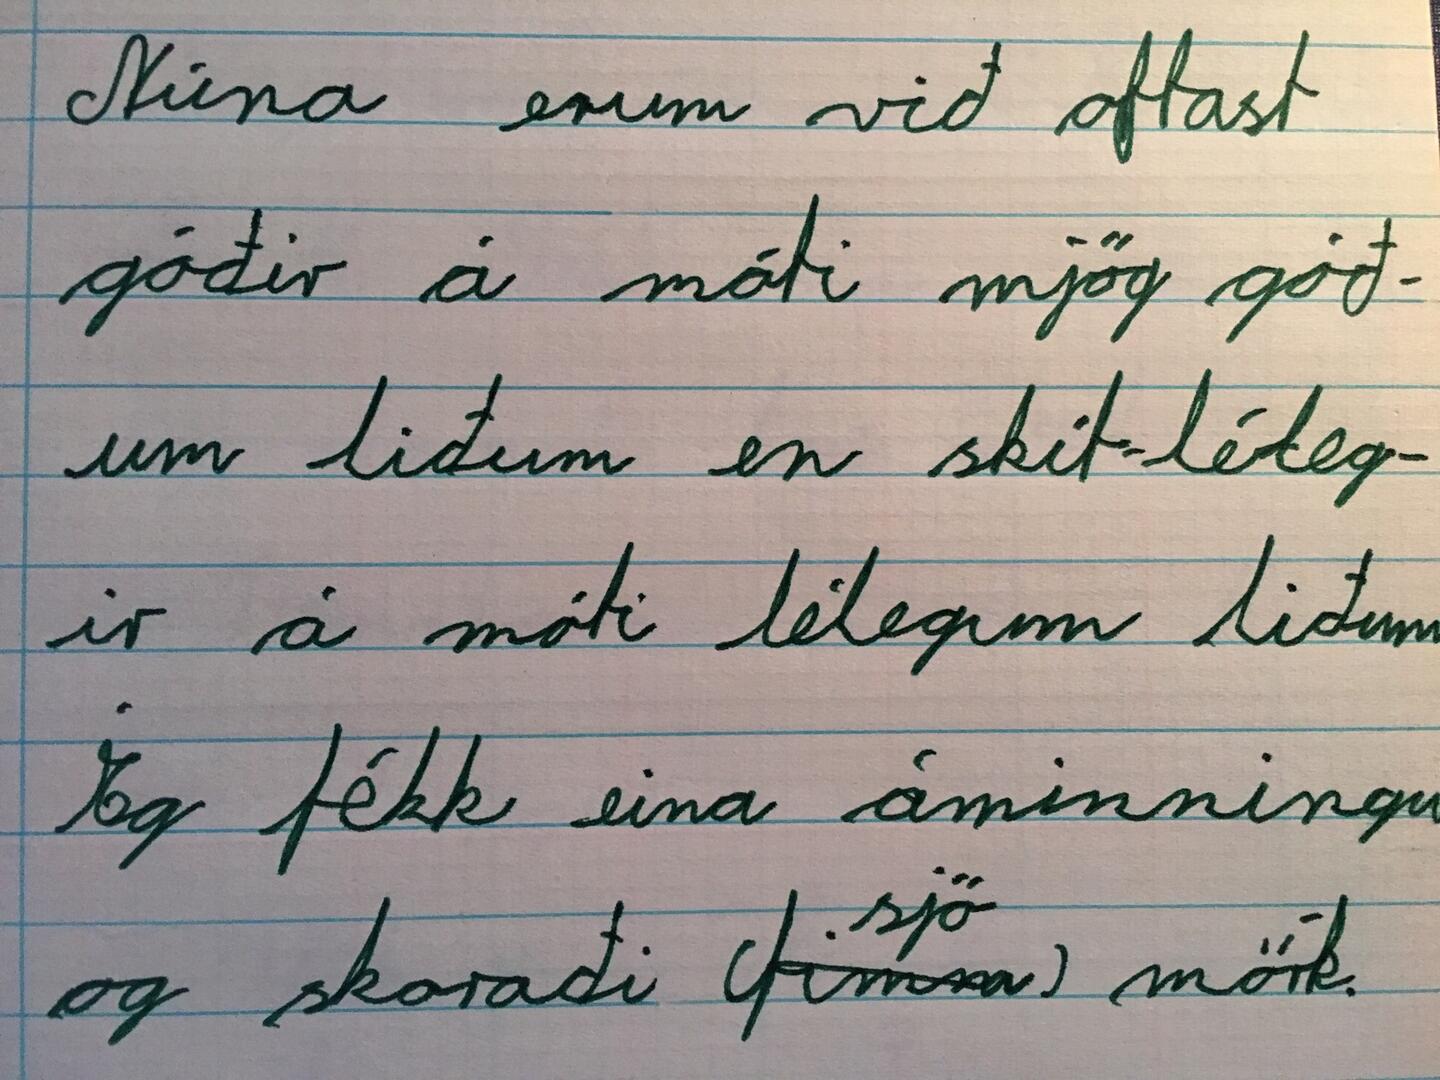 Núna erum við oftast
góðir á móti mjög góð-
um liðum en skít-léleg-
ir á móti lélegum liðum
Ég fékk eina áminningu
sjö
og skoraði (fimm) mörk.